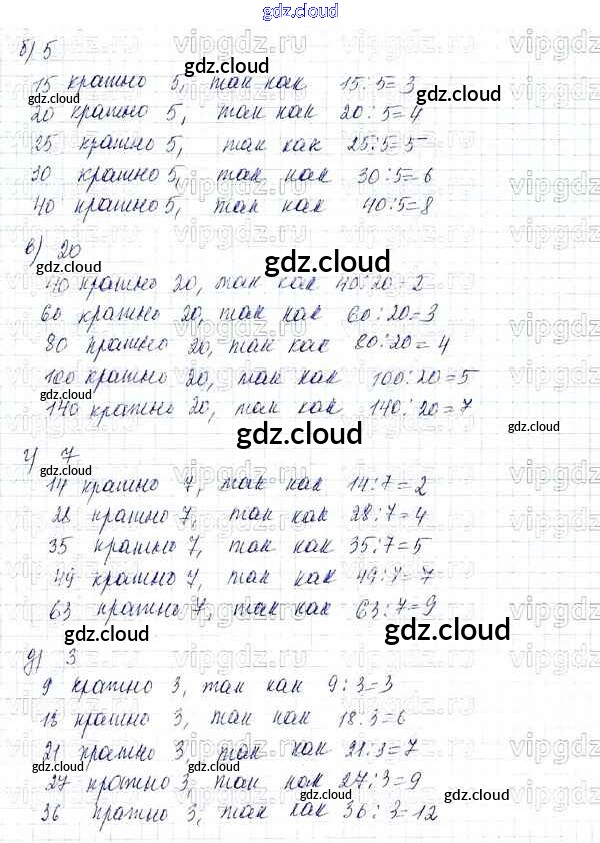 gdz.cloud
б) 5
15 кратно 5, так как 15:5=3
20 кратно 5, так как 20:5=4
25 кратно 5, так как 25:5=5
30 кратно 5, так как 30:5=6
40 кратно 5, так как 40:5=8
в) 20
40 кратно 20, так как 40:20=2
60 кратно 20, так как 60:20=3
80 кратно 20, так как 80:20=4
100 кратно 20, так как 100:20=5
140 кратно 20, так как 140:20=7
г) 7
14 кратно 7, так как 14:7=2
28 кратно 7, так как 28:7=4
35 кратно 7, так как 35:7=5
49 кратно 7, так как 49:7=7
63 кратно 7, так как 63:7=9
д) 3
9 кратно 3, так как 9:3=3
18 кратно 3, так как 18:3=6
21 кратно 3, так как 21:3=7
27 кратно 3, так как 27:3=9
36 кратно 3, так как 36:3=12